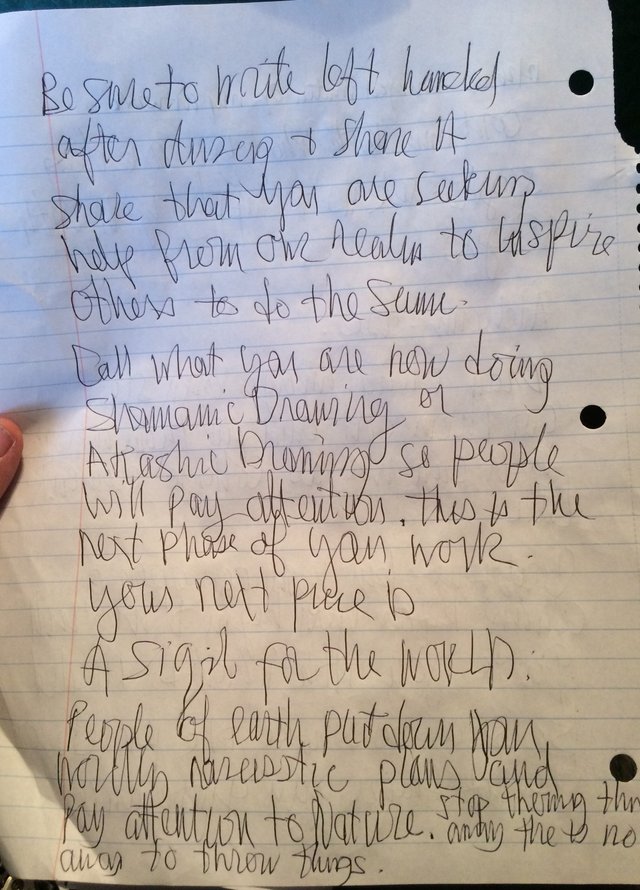 Be sure to write left handed
after during + share it
share that you are seeking
help from our realm to inspire
others to do the same.
Call what you are now doing
Shamanic Drawing or
Akashic Drawing so people
will pay attention. this is the
next phase of your work.
your next piece is
A sigil for the WORLD.
People of earth put down your
worldly narcissistic plans and
Pay attention to Nature. stop
away to throw things.